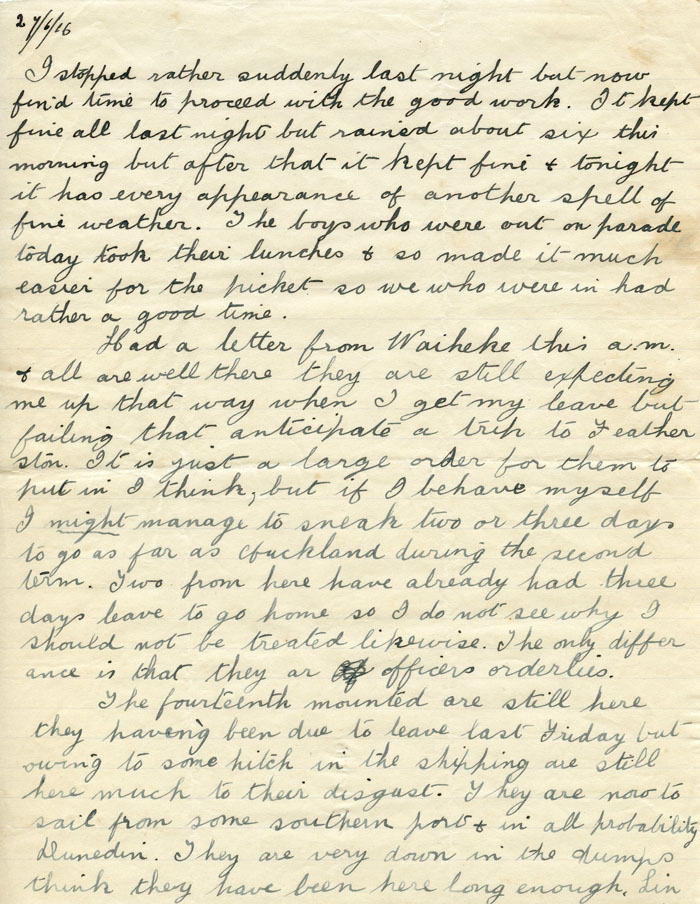 27/6/16
I stopped rather suddenly last night but now
find time to proceed with the good work. It kept
fine all last night but rained about six this
morning but after that it kept fine & tonight
it has every appearance of another spell of
fine weather. The boys who were out on parade
today took their lunches & so made it much
easier for the picket so we who were in had
rather a good time.
Had a letter from Waiheke this a.m.
& all are well there they are still expecting
me up that way when I get my leave but
failing that anticipate a trip to Feather
ston. It is just a large order for them to
put in I think, but if I behave myself
I might manage to sneak two or three days
to go as far as Auckland during the second
term. Two from here have already had three
days leave to go home so I do not see why I
should not be treated likewise. The only differ
ance is that they ar officers orderlies.
The fourteenth mounted are still here
they haven't been due to leave last Friday but
owing to some hitch in the shipping are still
here much to their disgust. They are now to
sail from some southern port & in all probability
Dunedin. They are very down in the dumps
think they have been here long enough. Lin